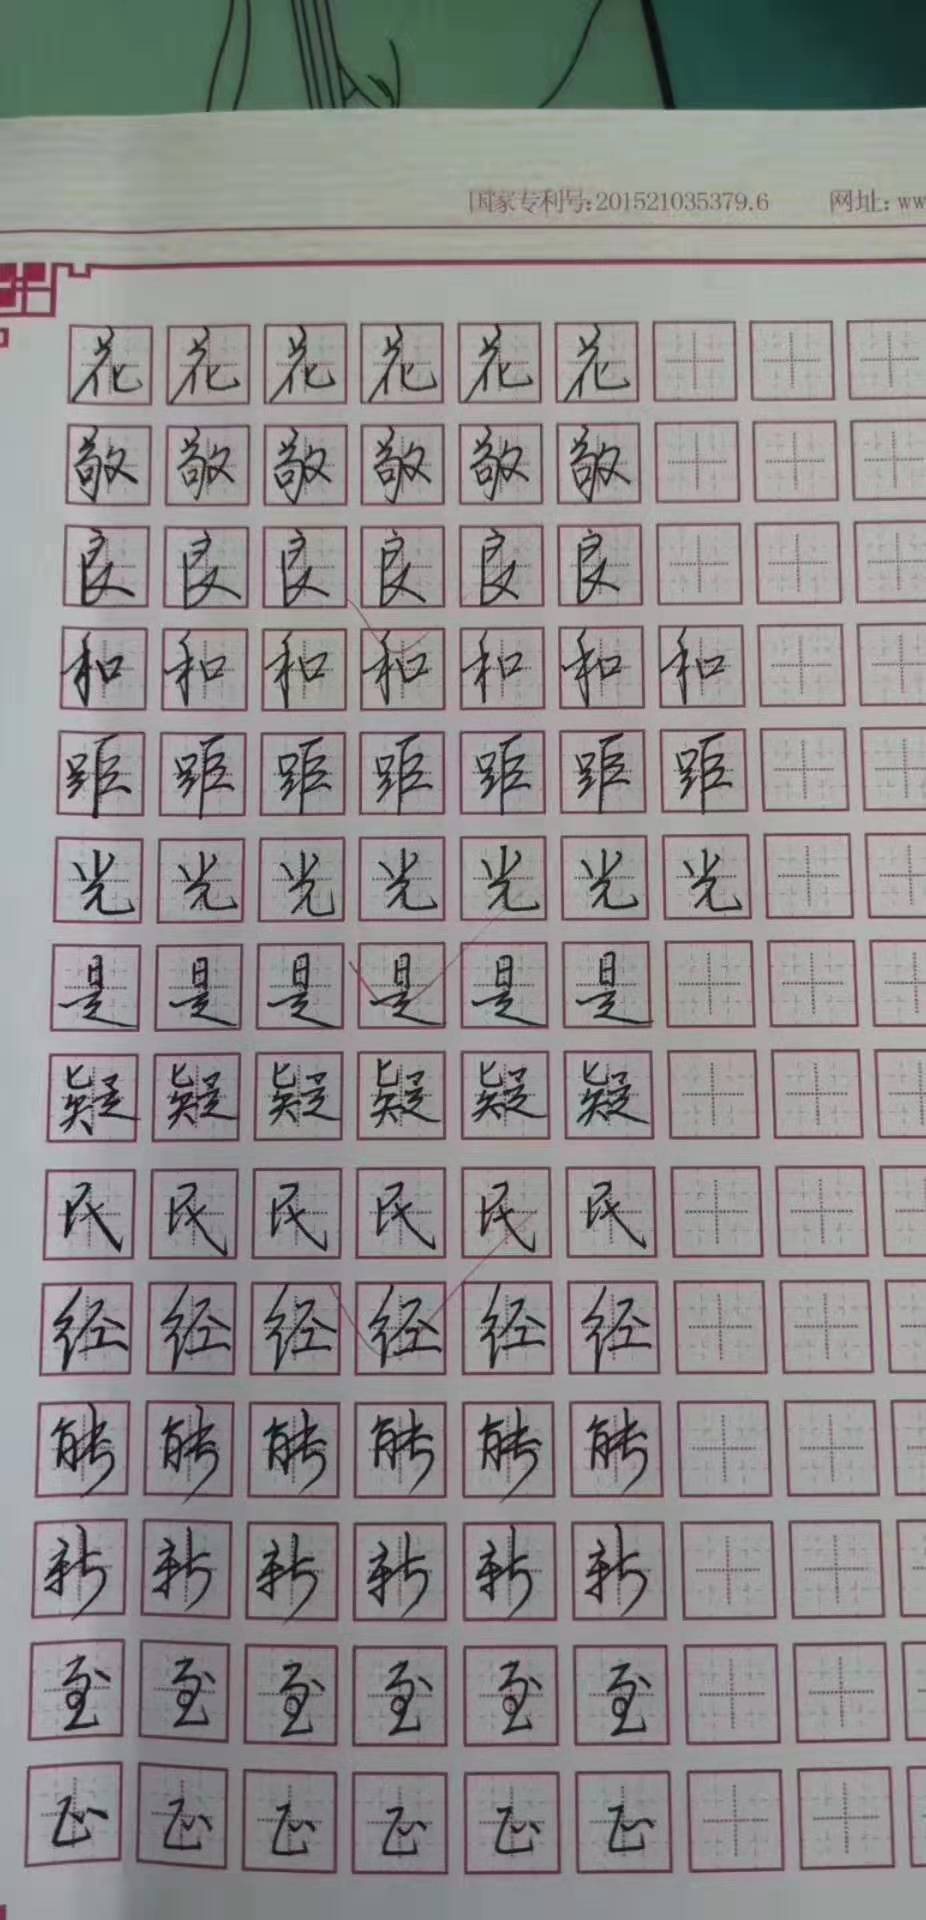 国家专利号:201521035379.6 网址: ww
花花花花花花
敬敬敬敬敬敬
良良良良良良
和和和和和和和
距距距距距距距
光光光光光光光
是是是是是是
疑疑疑疑疑疑
民民民民民民
经经经经经经
能能能能能能
新新新新新新
至至至至至至
正正正正正正